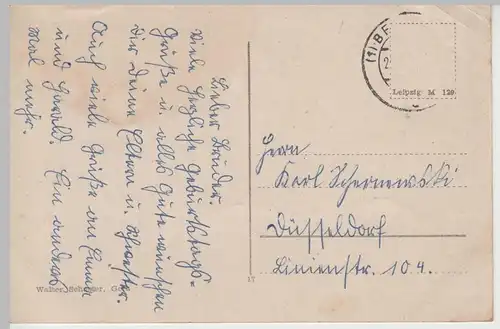 Lieber Bruder.
Viele herzliche Geburtstags-
Grüße u. alles Gute wünschen
Dir Deine Eltern u. Schwester.
Auch viele Grüße an Emma
und Harald. Ein anders
Mal mehr.
(1) BE
Leipzig M 120
Herrn
Karl Schernewski
Düsseldorf
Linienstr. 104.